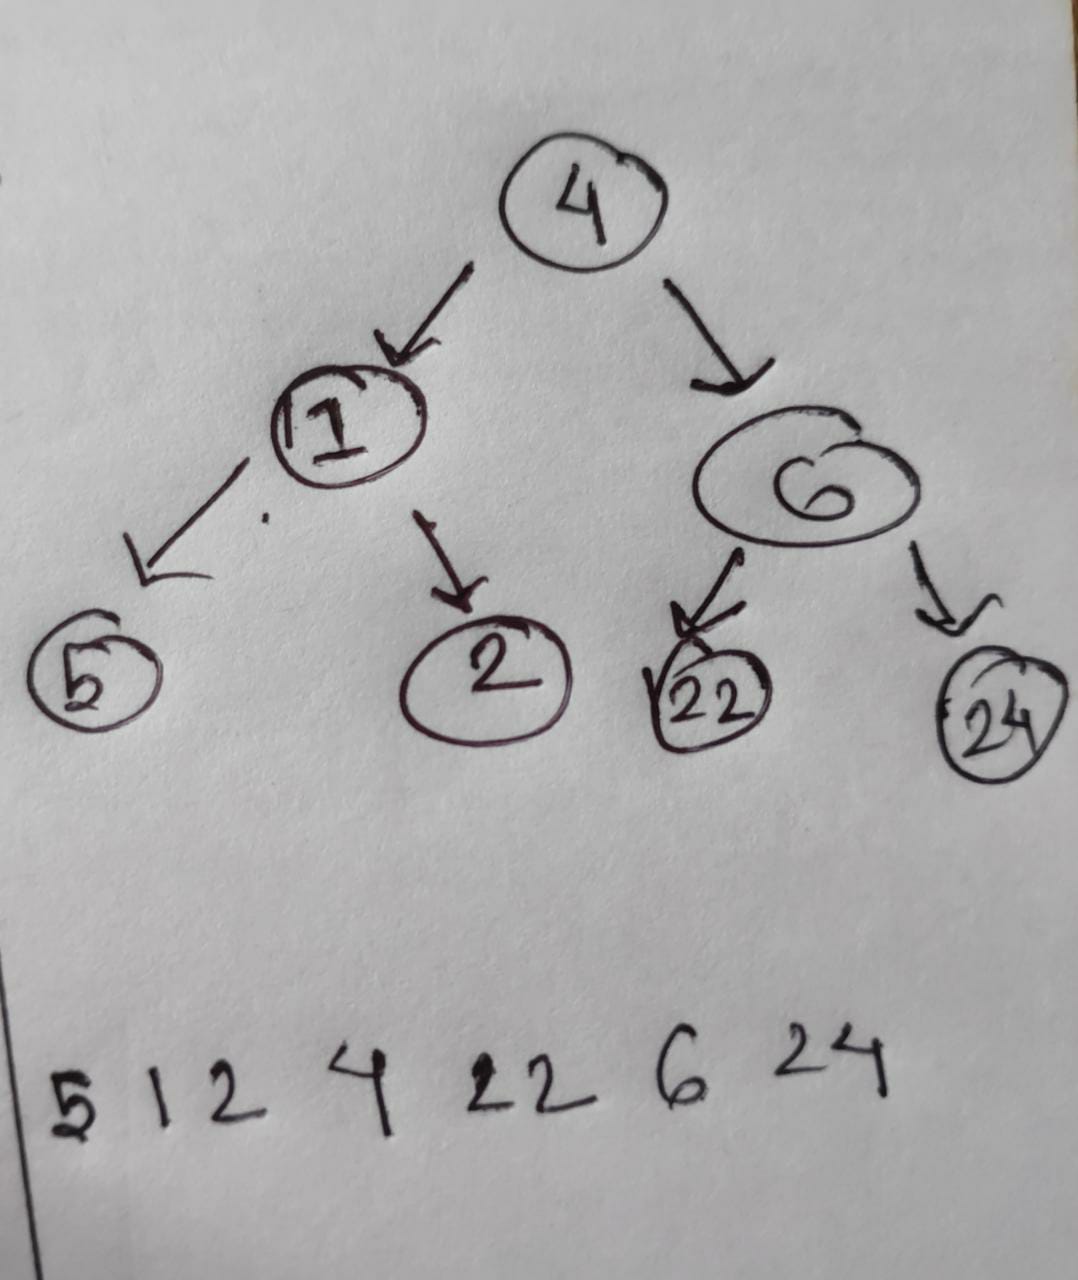 4
1 6
5 2 22 24
5 1 2 4 22 6 24